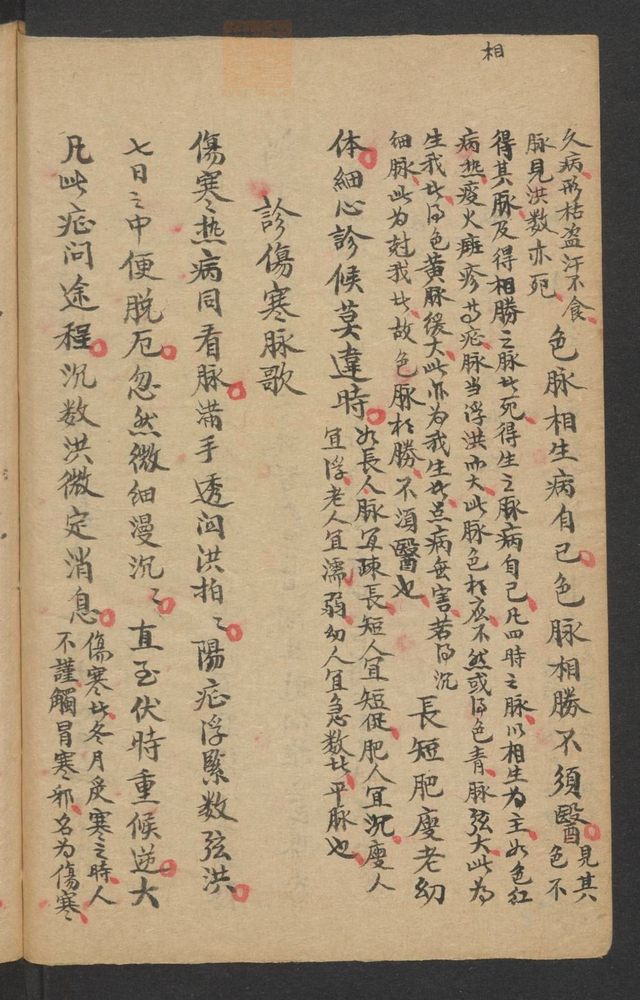 相
久病形枯盗汗不食
脉見洪数亦死
色脉相生病自已色脉相勝不須醫
見其
色不
得其脉及得相勝之脉此死得生之脉病自已凡四時之脉以相生为主如色红
病热疫火癍疹芇症脉当浮洪而大此脉色相应不然或得色青脉弦大此为
生我此得色黄脉缓大此亦为我生此点病無害若得沉
细脉此为尅我此故色脉相勝不須醫也
長短肥瘦老幼
体細心診候莫違時
如長人脉宜疎長短人宜短促肥人宜沉瘦人
宜浮老人宜濡弱幼人宜急数此平脉也
診傷寒脉歌
傷寒热病同看脉满手透闷洪拍〻陽症浮緊数弦洪
七日之中便脱厄忽然微細漫沉〻直至伏時重候逆大
凡此症问途程沉数洪微定消息
傷寒此冬月受寒之時人
不謹觸冒寒邪名为傷寒